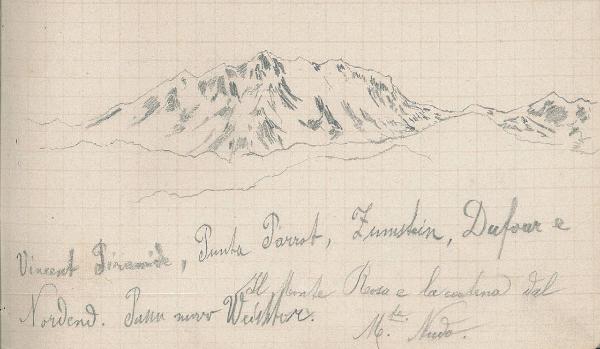 Vincent Piramide, Punta Parrot, Zumstein, Dufour e
Nordend. Weisstor.
Il Monte Rosa e la catena dal
M.te Nudo.